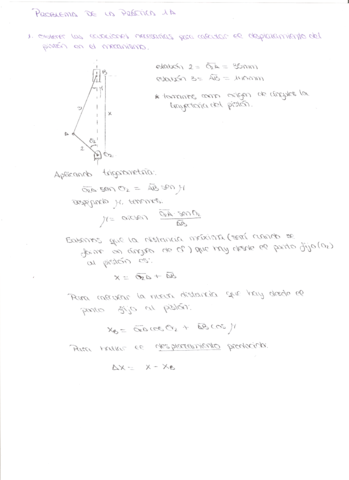 PROBLEMA DE LA PRÁCTICA 1A
1. Obtener las ecuaciones necesarias para calcular el desplazamiento del
pistón en el mecanismo.
eslabón 2 = O₂A = 35mm
eslabón 3 = AB =
* tomamos como origen de ángulos la
trayectoria del pistón.
B
γ
3
x
A
θ₂
2
O₂
Aplicando trigonometría:
O₂A sen θ₂ = AB sen γ
despejando γ,
γ = arcsen O₂A sen θ₂ / AB
que la distancia máxima (será cuando se
un ángulo de 0°) que hay desde el punto fijo (O₂)
al pistón es:
x = O₂A + AB
Para calcular la nueva distancia que hay desde el
punto fijo al pistón:
x_B = O₂A cos θ₂ + AB cos γ
Para hallar el desplazamiento
Δx = x - x_B